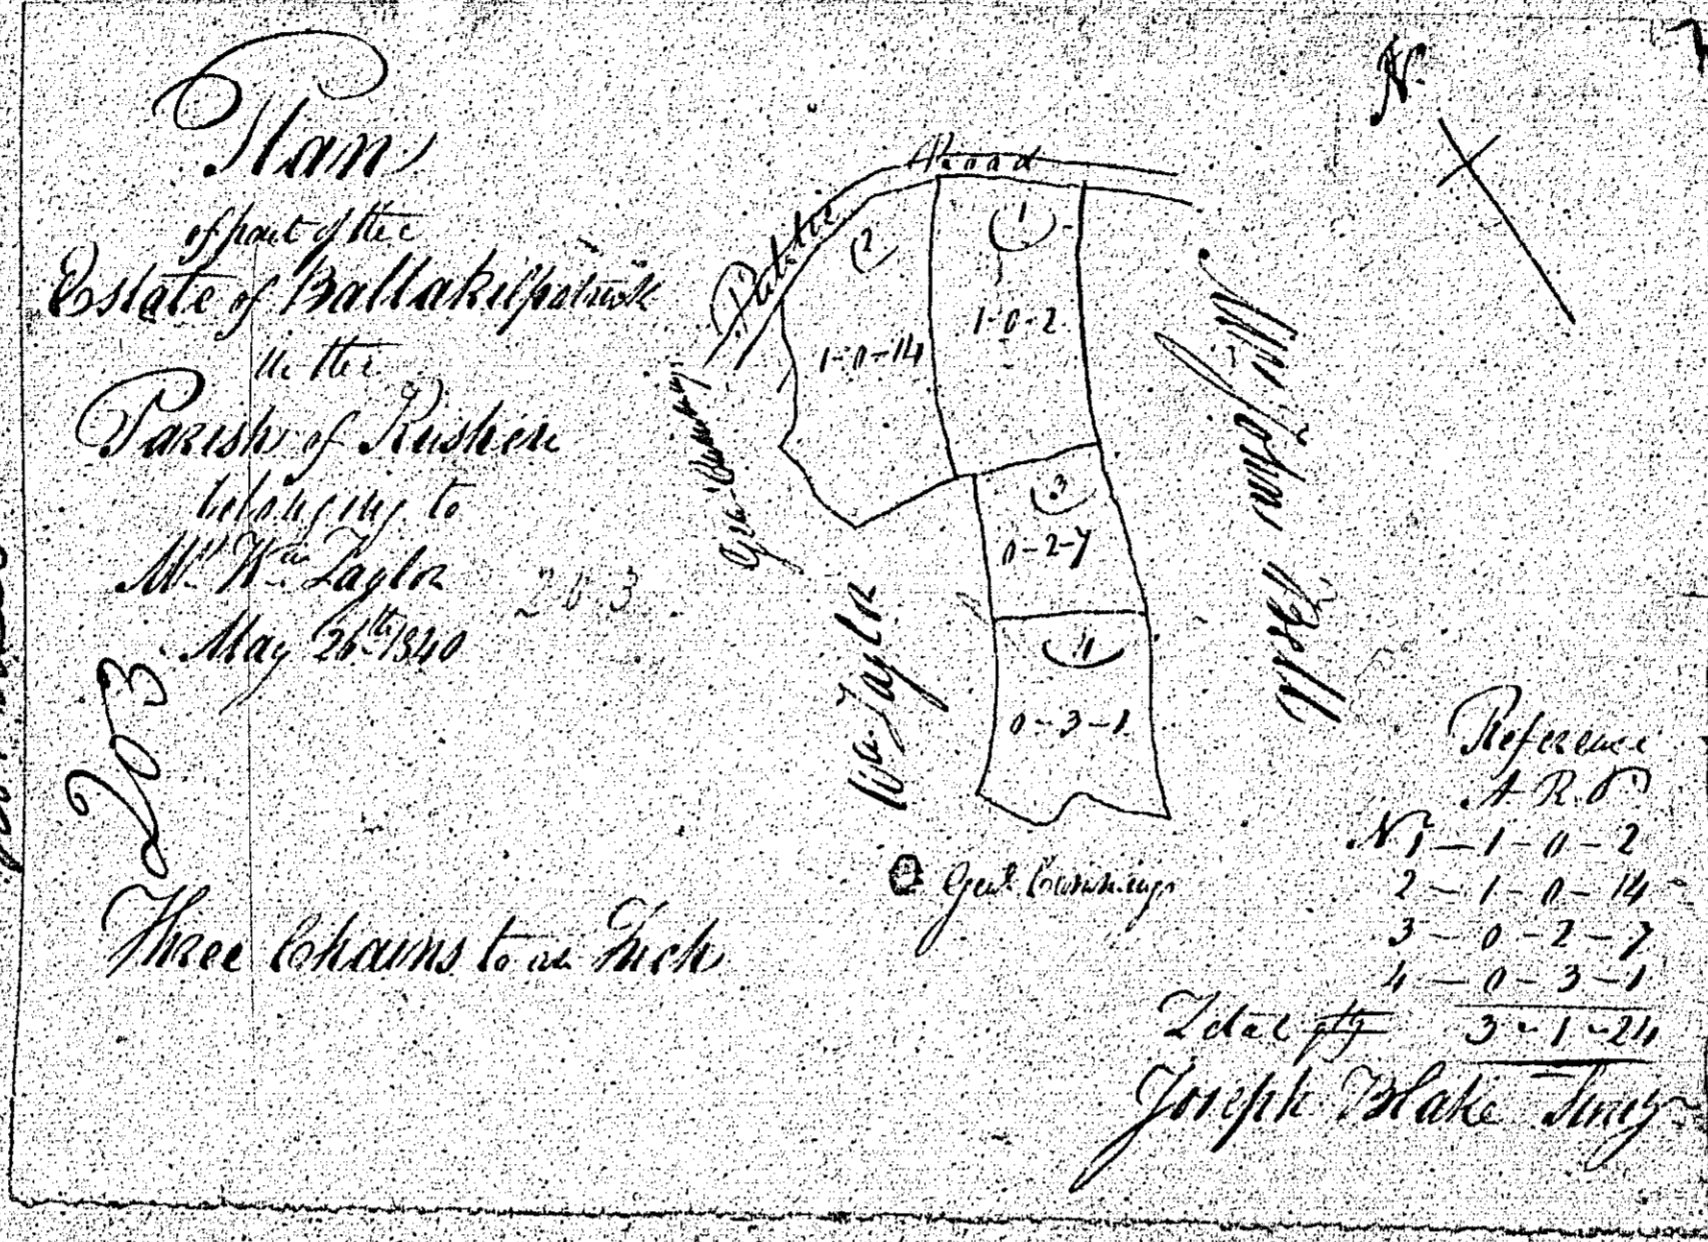 Plan
of part of the
Estate of Ballakilpatrick
in the
Parish of Rushen
belonging to
Mr. Wm. Taylor
May 26th 1840
203
203
Three Chains to an Inch
N.
Public Road
1
1-0-2
2
1-0-14
3
0-2-7
4
0-3-1
Geo.
Wm Taylor
Mr. John Bell
Reference
A R P
No 1 - 1 - 0 - 2
2 - 1 - 0 - 14
3 - 0 - 2 - 7
4 - 0 - 3 - 1
Total qty 3 - 1 - 24
Joseph Blake Survr